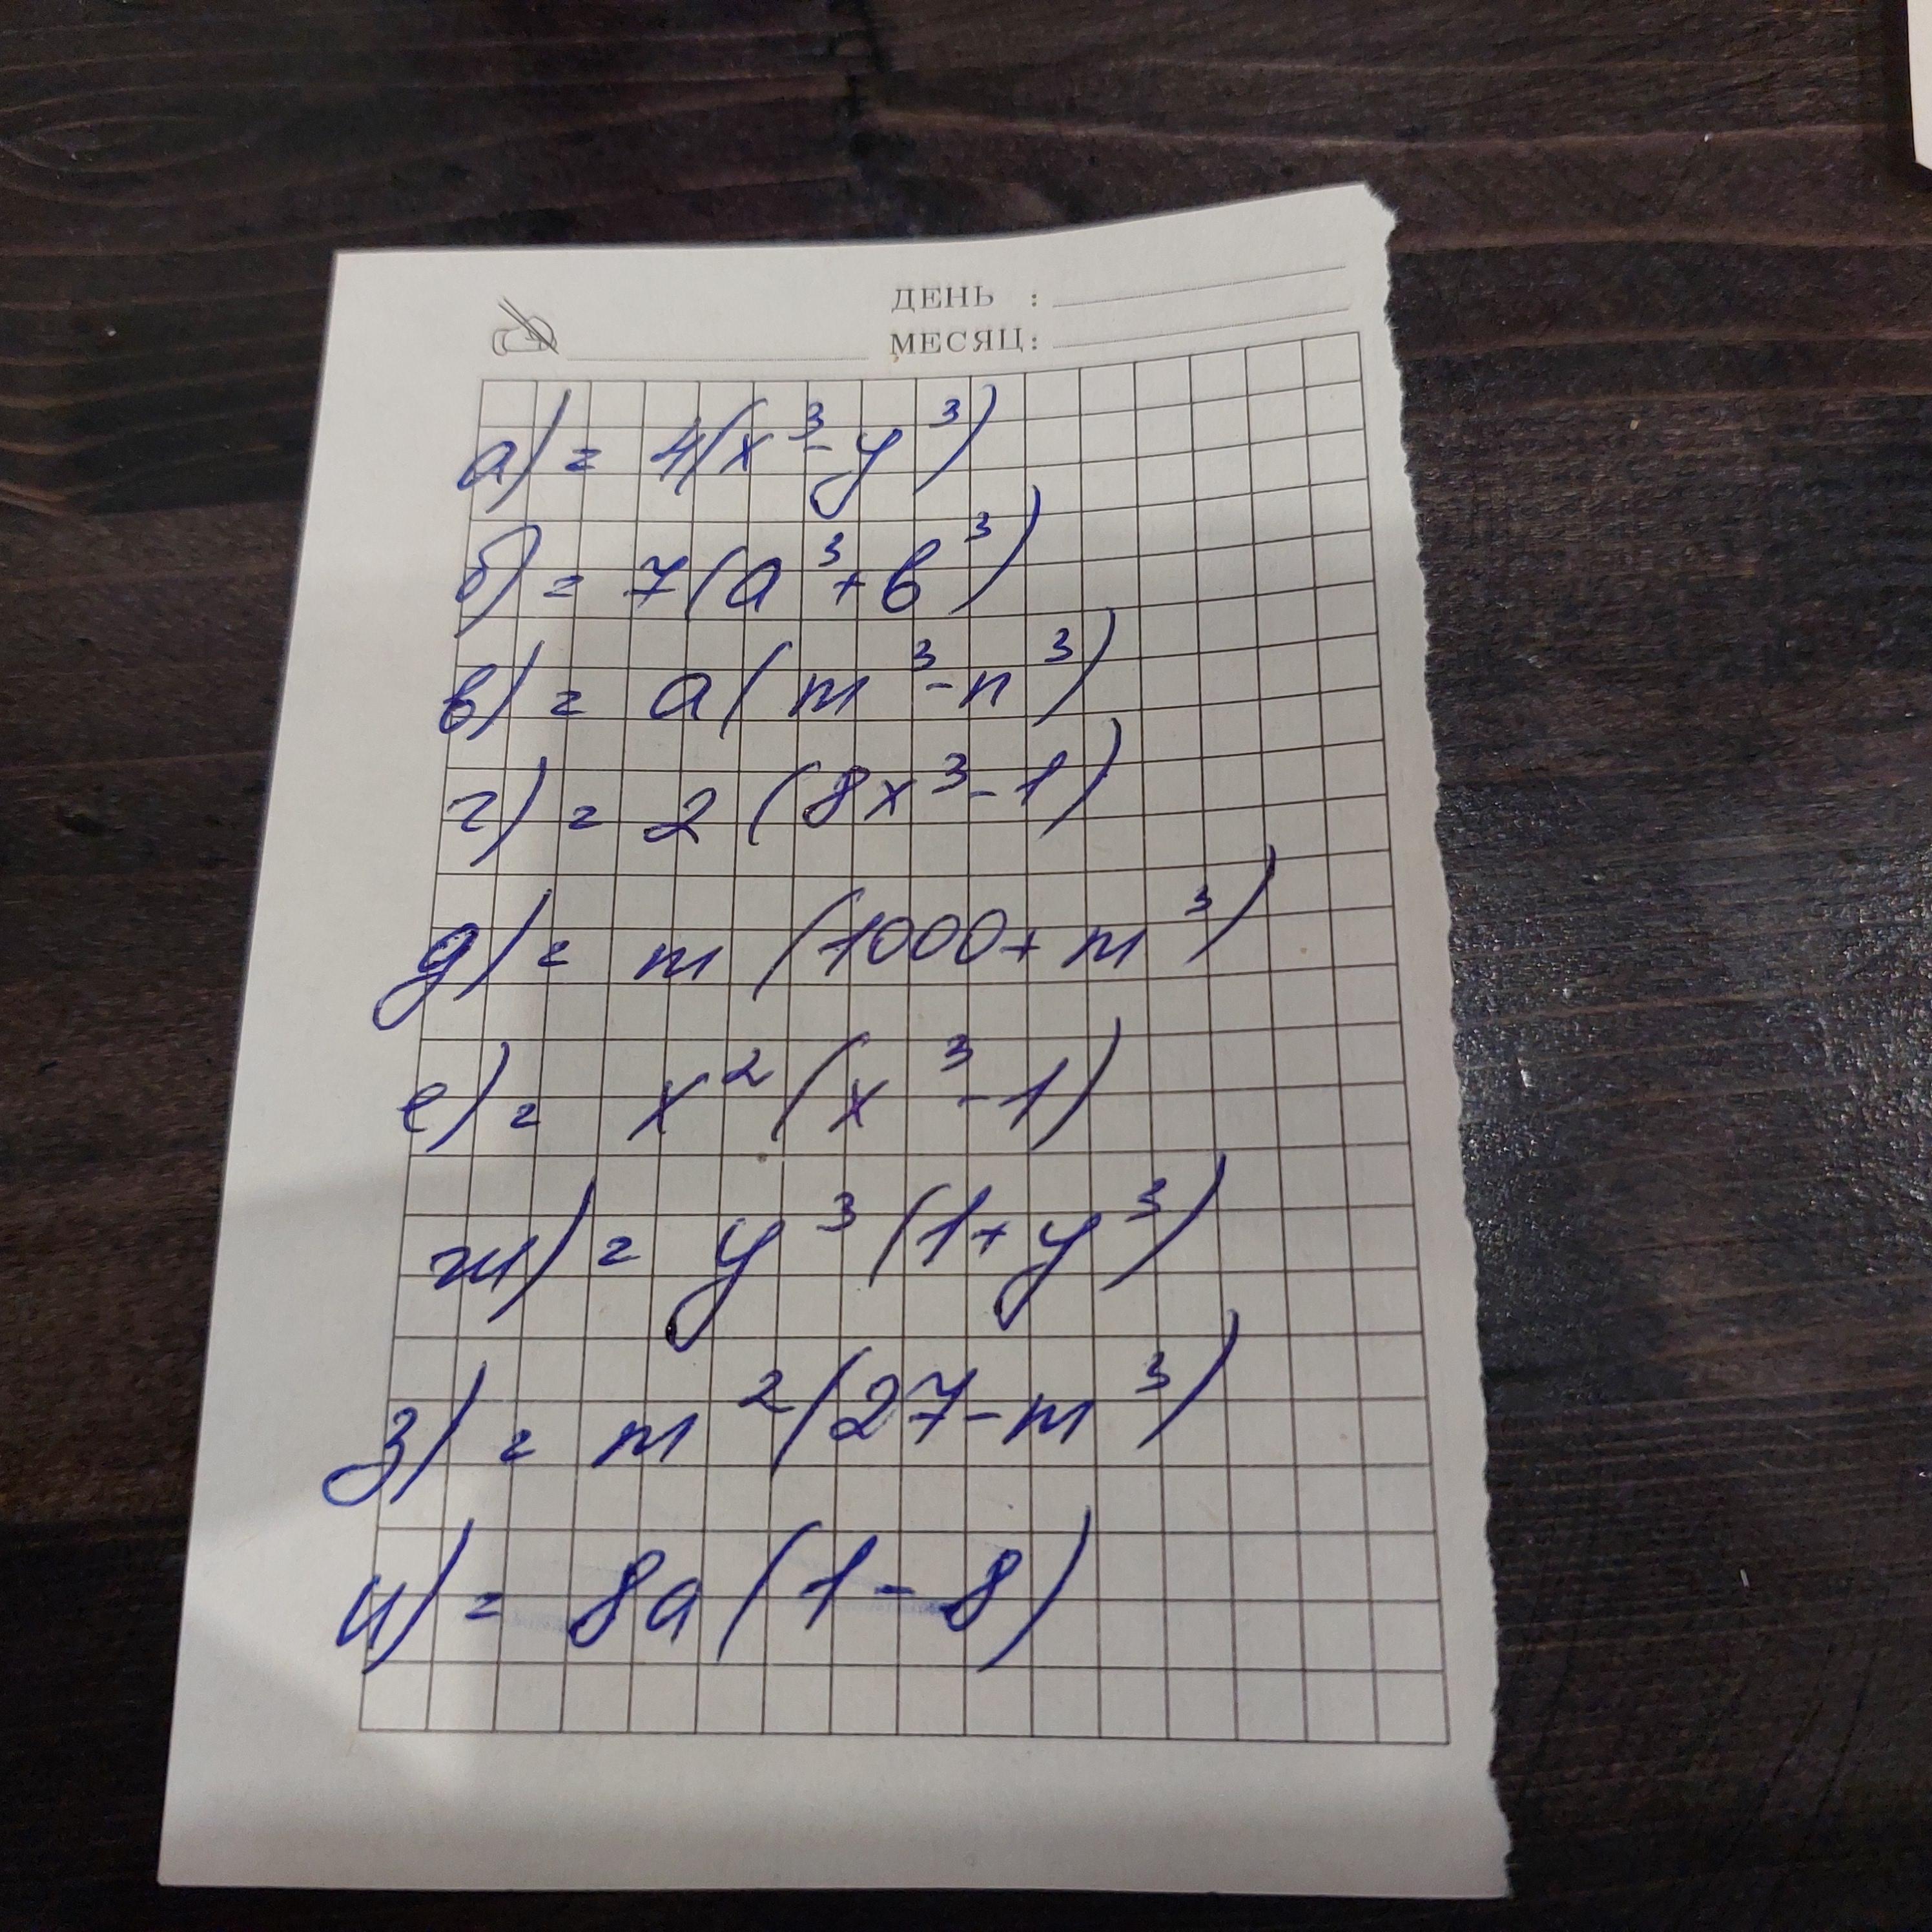 ДЕНЬ :
МЕСЯЦ:
а) = 4(x³-y³)
б) = 7(a³+b³)
в) = a(m³-n³)
г) = 2(8x³-1)
д) = m(1000+m³)
е) = x²(x³-1)
ж) = y³(1+y³)
з) = m²(27-m³)
и) = 8a(1-8)